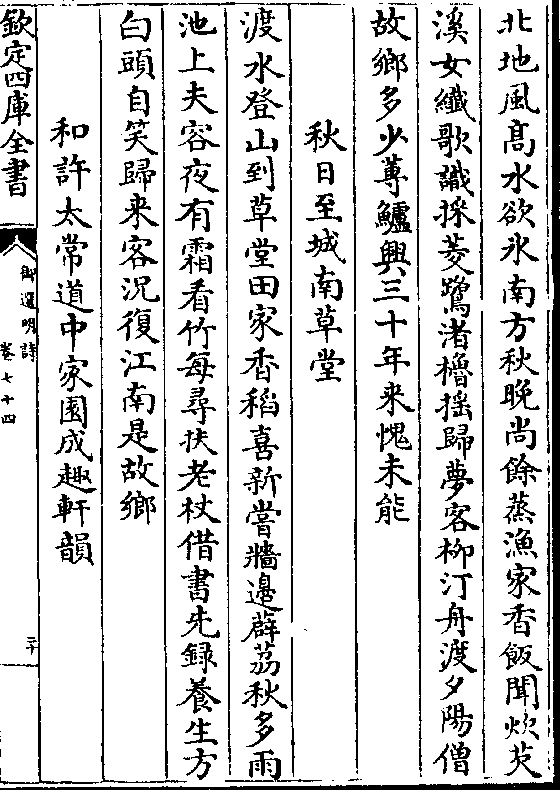 北地風髙水欲氷南方秋晚尚餘蒸漁家香飯聞炊芡
溪女纎歌識採菱鷺渚櫓揺歸夢客柳汀舟渡夕陽僧
故鄉多少蓴鱸興三十年来愧未能
秋日至城南草堂
渡水登山到草堂田家香稻喜新嘗牆邉薜荔秋多雨
池上夫容夜有霜看竹每尋扶老杖借書先録養生方
白頭自笑歸来客况復江南是故鄉
和許太常道中家園成趣軒韻
欽定四庫全書
御選明詩
卷七十四
三十